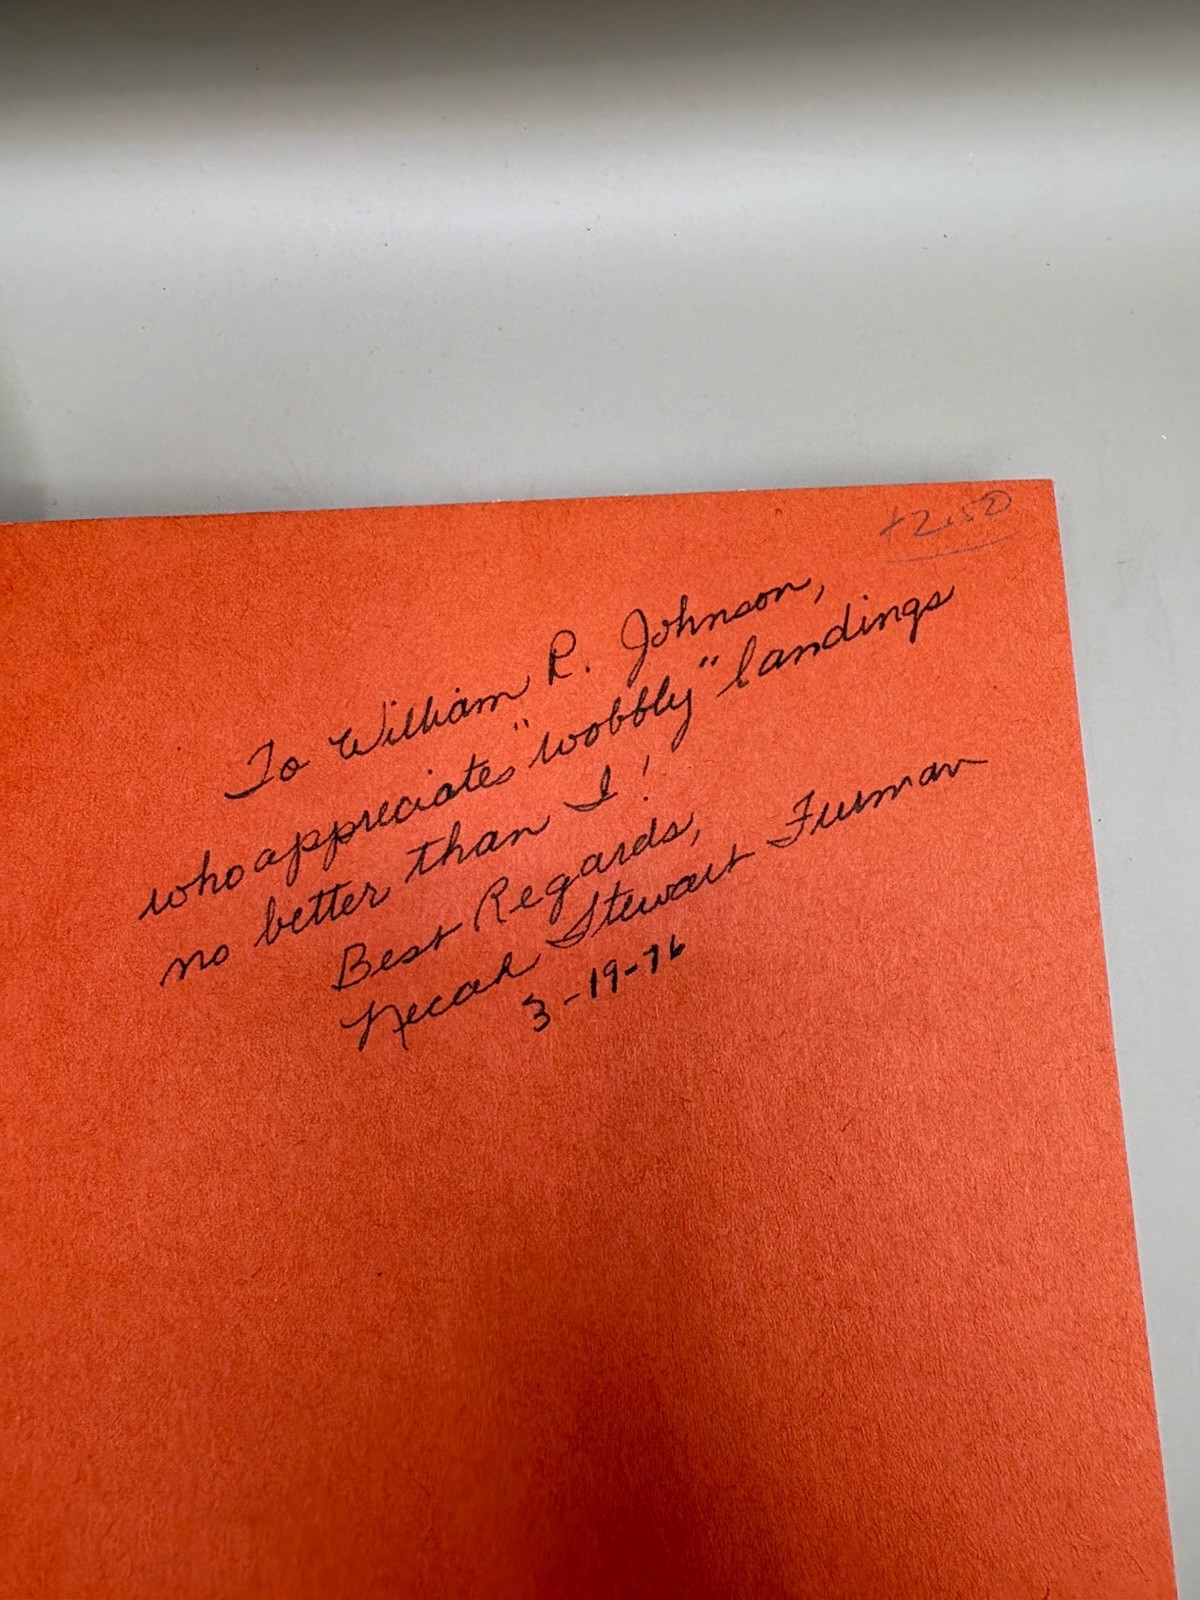 +2.50
To William R. Johnson,
who appreciates "wobbly" landings
no better than I!
Best Regards,
Necah Stewart Furman
3-19-76